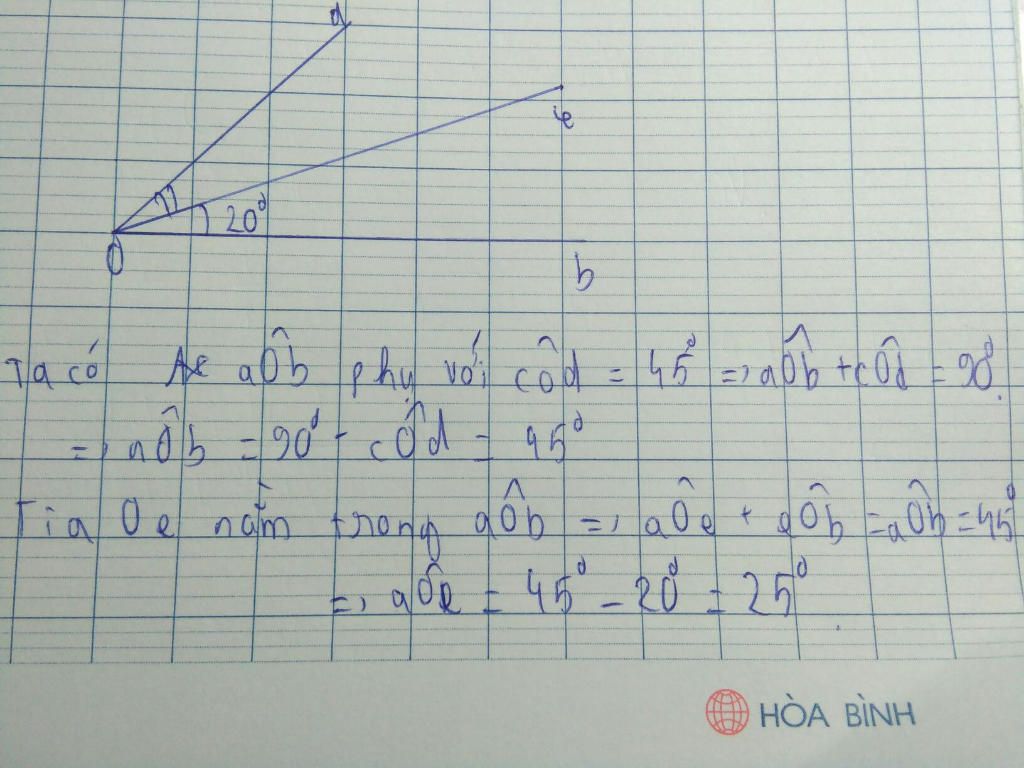 a
e
20°
O
b
Ta có aÔb phụ với cÔd = 45° => aÔb + cÔd = 90°
=> aÔb = 90° - cÔd = 45°
Tia Oe nằm trong aÔb => aÔe + eÔb = aÔb = 45°
=> aÔe = 45° - 20° = 25°
HÒA BÌNH